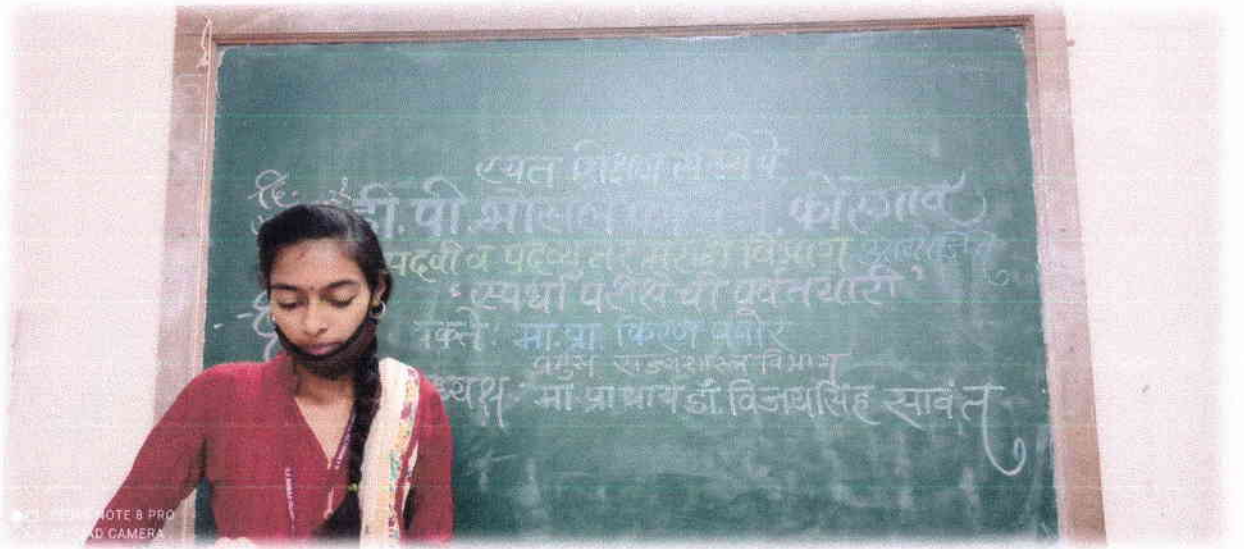 रयत शिक्षण संस्थेचे
दि.
डी. पी. भोसले कोरेगाव
पदवी व पदव्युत्तर मराठी विभाग
'स्पर्धा परीक्षेची पूर्वतयारी'
वक्ते: मा. प्रा. किरण
प्रमुख राज्यशास्त्र विभाग
ध्यक्ष: मा. प्राचार्य डॉ. विजयसिंह सावंत
NOTE 8 PRO
AD CAMERA